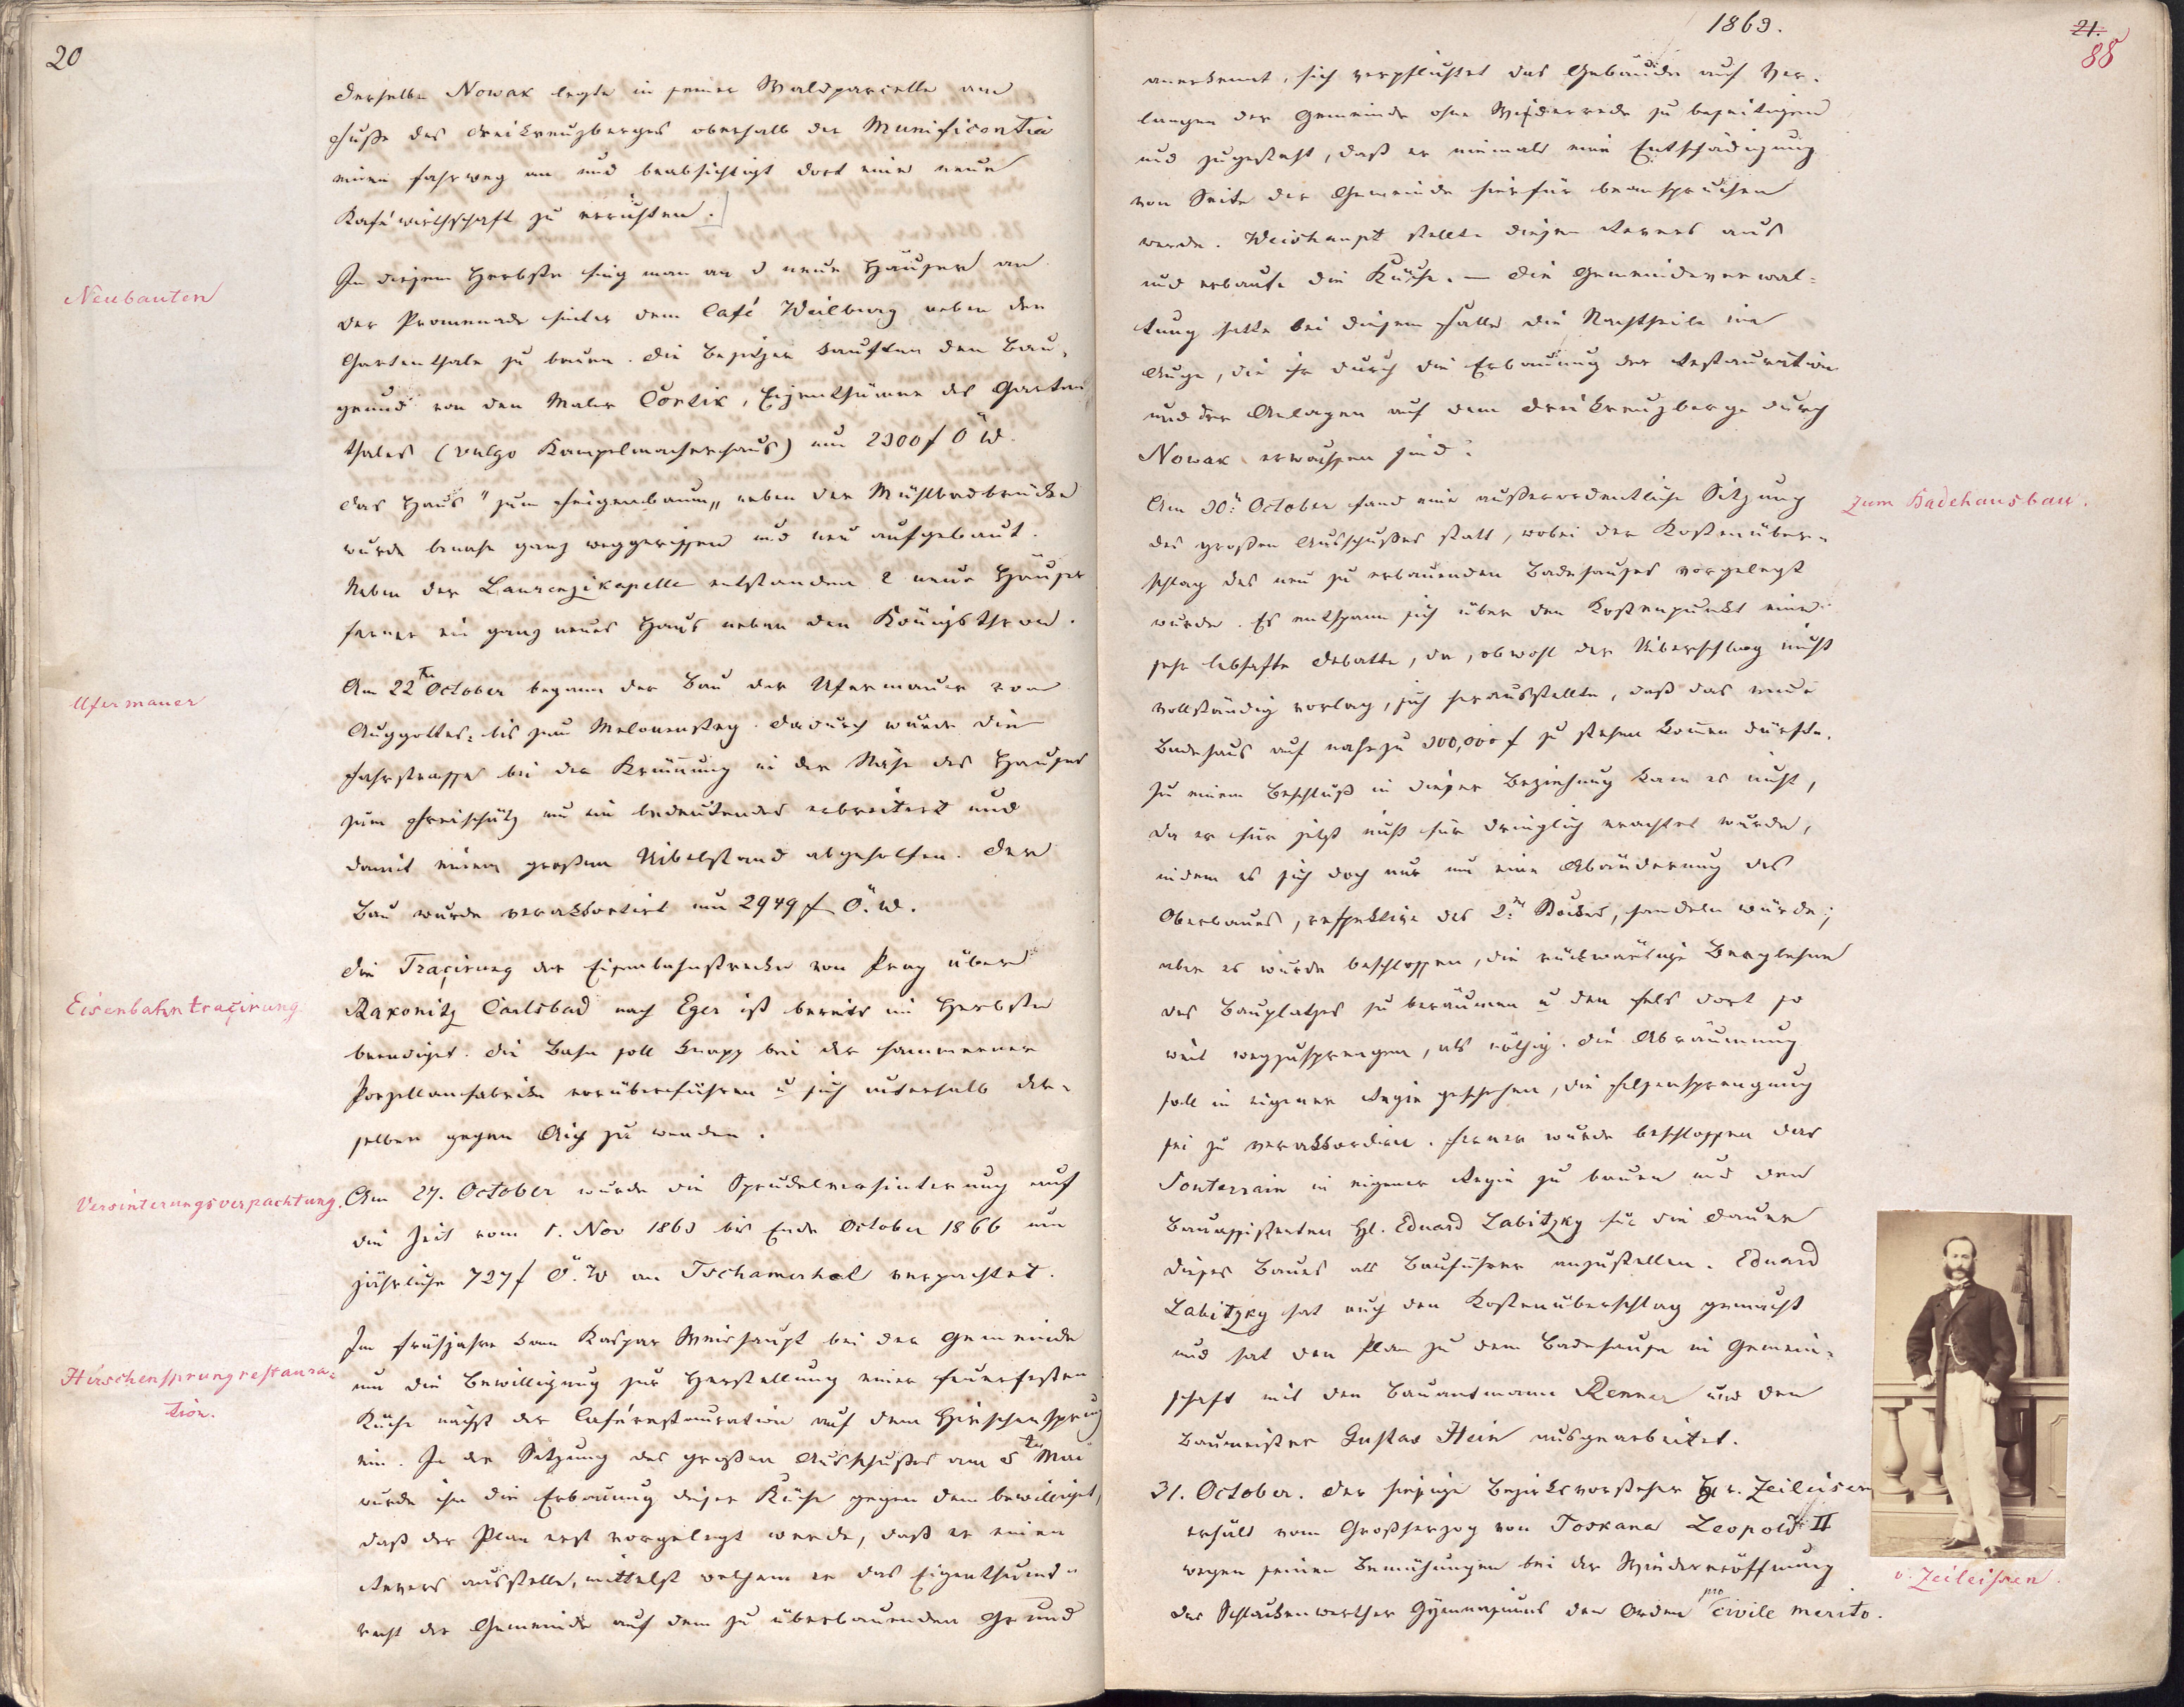 20
derselbe Nowak legte in seiner Waldparcelle am
Fuße des Dreikreuzberges oberhalb der Munificentia
einen Fahrweg an und beabsichtigt dort eine neue
Kaféwirthschaft zu errichten.
Neubauten
In diesem Herbste fing man an 3 neue Häuser an
der Promenade hinter dem Café Weilburg neben dem
Gartenthale zu bauen. Die Besitzer kauften den Bau-
grund von dem Maler Cortik, Eigenthümer des Garten
thales (vulgo Kampelmacherhaus) um 2300 f Ö W.
Das Haus "zum Feigenbaum" neben der Mühlbadbrücke
wurde beinahe ganz weggerissen und neu aufgebaut.
Neben der Laurenzikapelle entstanden 2 neue Häuser
ferner ein ganz neues Haus neben dem Königsthron.
Ufermauer
Am 22ten October begann der Bau der Ufermauer vom
Auggottes- bis zum Melonensteg. Dadurch wurde die
Fahrstrasse bei der Krümmung in der Nähe des Hauses
zum Freischütz um ein bedeutendes erbreitert und
damit einem großen Uibelstand abgeholfen. Der
Bau wurde verakkordirt um 2949 f Ö. W.
Eisenbahntraçirung
Die Traçirung der Eisenbahnstrecke von Prag über
Rakonitz Carlsbad nach Eger ist bereits im Herbste
beendiget. Die Bahn soll knapp bei der Hammerner
Porzellanfabrike vorüberführen u sich unterhalb der-
selben gegen Aich zu wenden.
Versinterungsverpachtung.
Am 27. October wurde die Sprudelversinterung auf
die Zeit vom 1. Nov 1863 bis Ende October 1866 um
jährliche 727 f Ö. W an Tschamerhel verpachtet.
Hirschensprungrestaura-
tion.
Im Frühjahre kam Kaspar Weishaupt bei der Gemeinde
um die Bewilligung zur Herstellung einer feuerfesten
Küche nächst der Caférestauration auf dem Hirschensprung
ein. In der Sitzung des großen Ausschußes am 5ten Mai
wurde ihm die Erbauung dieser Küche gegen dem bewilligt,
daß der Plan erst vorgelegt werde, daß er einen
Revers ausstelle, mittelst welchem er das Eigenthums-
recht der Gemeinde auf dem zu überbauenden Grund
1863.
21.
88
anerkennt, sich verpflichtet das Gebäude auf Ver-
langen der Gemeinde ohne Wiederrede zu beseitigen
und zugesteht, daß er niemals eine Entschädigung
von Seite der Gemeinde hierfür beanspruchen
werde. Weishaupt stellte diesen Revers aus
und erbaute die Küche. — Die Gemeindeverwal-
tung hatte bei diesem Falle die Nachtheile im
Auge, die ihr durch die Erbauung der Restauration
und der Anlagen auf dem Dreikreuzberge durch
Nowak erwachsen sind.
Zum Badehausbau.
Am 30. October fand eine außerordentliche Sitzung
des großen Ausschußes statt, wobei der Kostenüber-
schlag des neu zu erbauenden Badehauses vorgelegt
wurde. Es entspann sich über den Kostenpunkt eine
sehr lebhafte Debatte, da, obwohl der Uiberschlag nicht
vollständig vorlag, sich herausstellte, daß das neue
Badehaus auf nahezu 300,000 f zu stehen komen dürfte.
Zu einem Beschluß in dieser Beziehung kam es nicht,
da er für jetzt nicht für dringlich erachtet wurde,
indem es sich doch nur um eine Abänderung des
Oberbaues, respektive des 2ten Stockes, handeln würde;
aber es wurde beschlossen, die rückwärtige Berglehne
des Bauplatzes zu beräumen u den Fels dort so
weit wegzusprengen, als nöthig. Die Abräumung
soll in eigener Regie geschehen, die Felsensprengung
sei zu verakkordiren. Ferner wurde beschlossen das
Souterrain in eigener Regie zu bauen und den
Bauassistenten H. Eduard Labitzky für die Dauer
dieses Baues als Bauführer anzustellen. Eduard
Labitzky hat auch den Kostenüberschlag gemacht
und hat den Plan zu dem Badehause in Gemein-
schaft mit dem Bauamtmann Renner und dem
Baumeister Gustav Hein ausgearbeitet.
31. October. Der hiesige Bezirksvorsteher Hr. v. Zeileisen
erhält vom Großherzog von Toskana Leopold II
wegen seinen Bemühungen bei der Wiedereröffnung
des Schlackenwerther Gymnasiums den Orden pro civile merito.
v. Zeileisen.